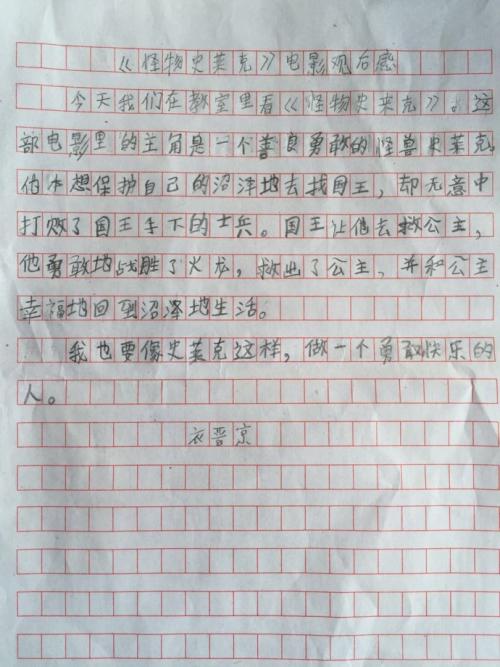 《怪物史莱克》电影观后感
今天我们在教室里看《怪物史莱克》。这
部电影里的主角是一个善良勇敢的怪兽史莱克。
他本想保护自己的沼泽地去找国王，却无意中
打败了国王手下的士兵。国王让他去救公主，
他勇敢地战胜了火龙，救出了公主，并和公主
幸福地回到沼泽地生活。
我也要像史莱克这样，做一个勇敢快乐的
人。
衣晋京